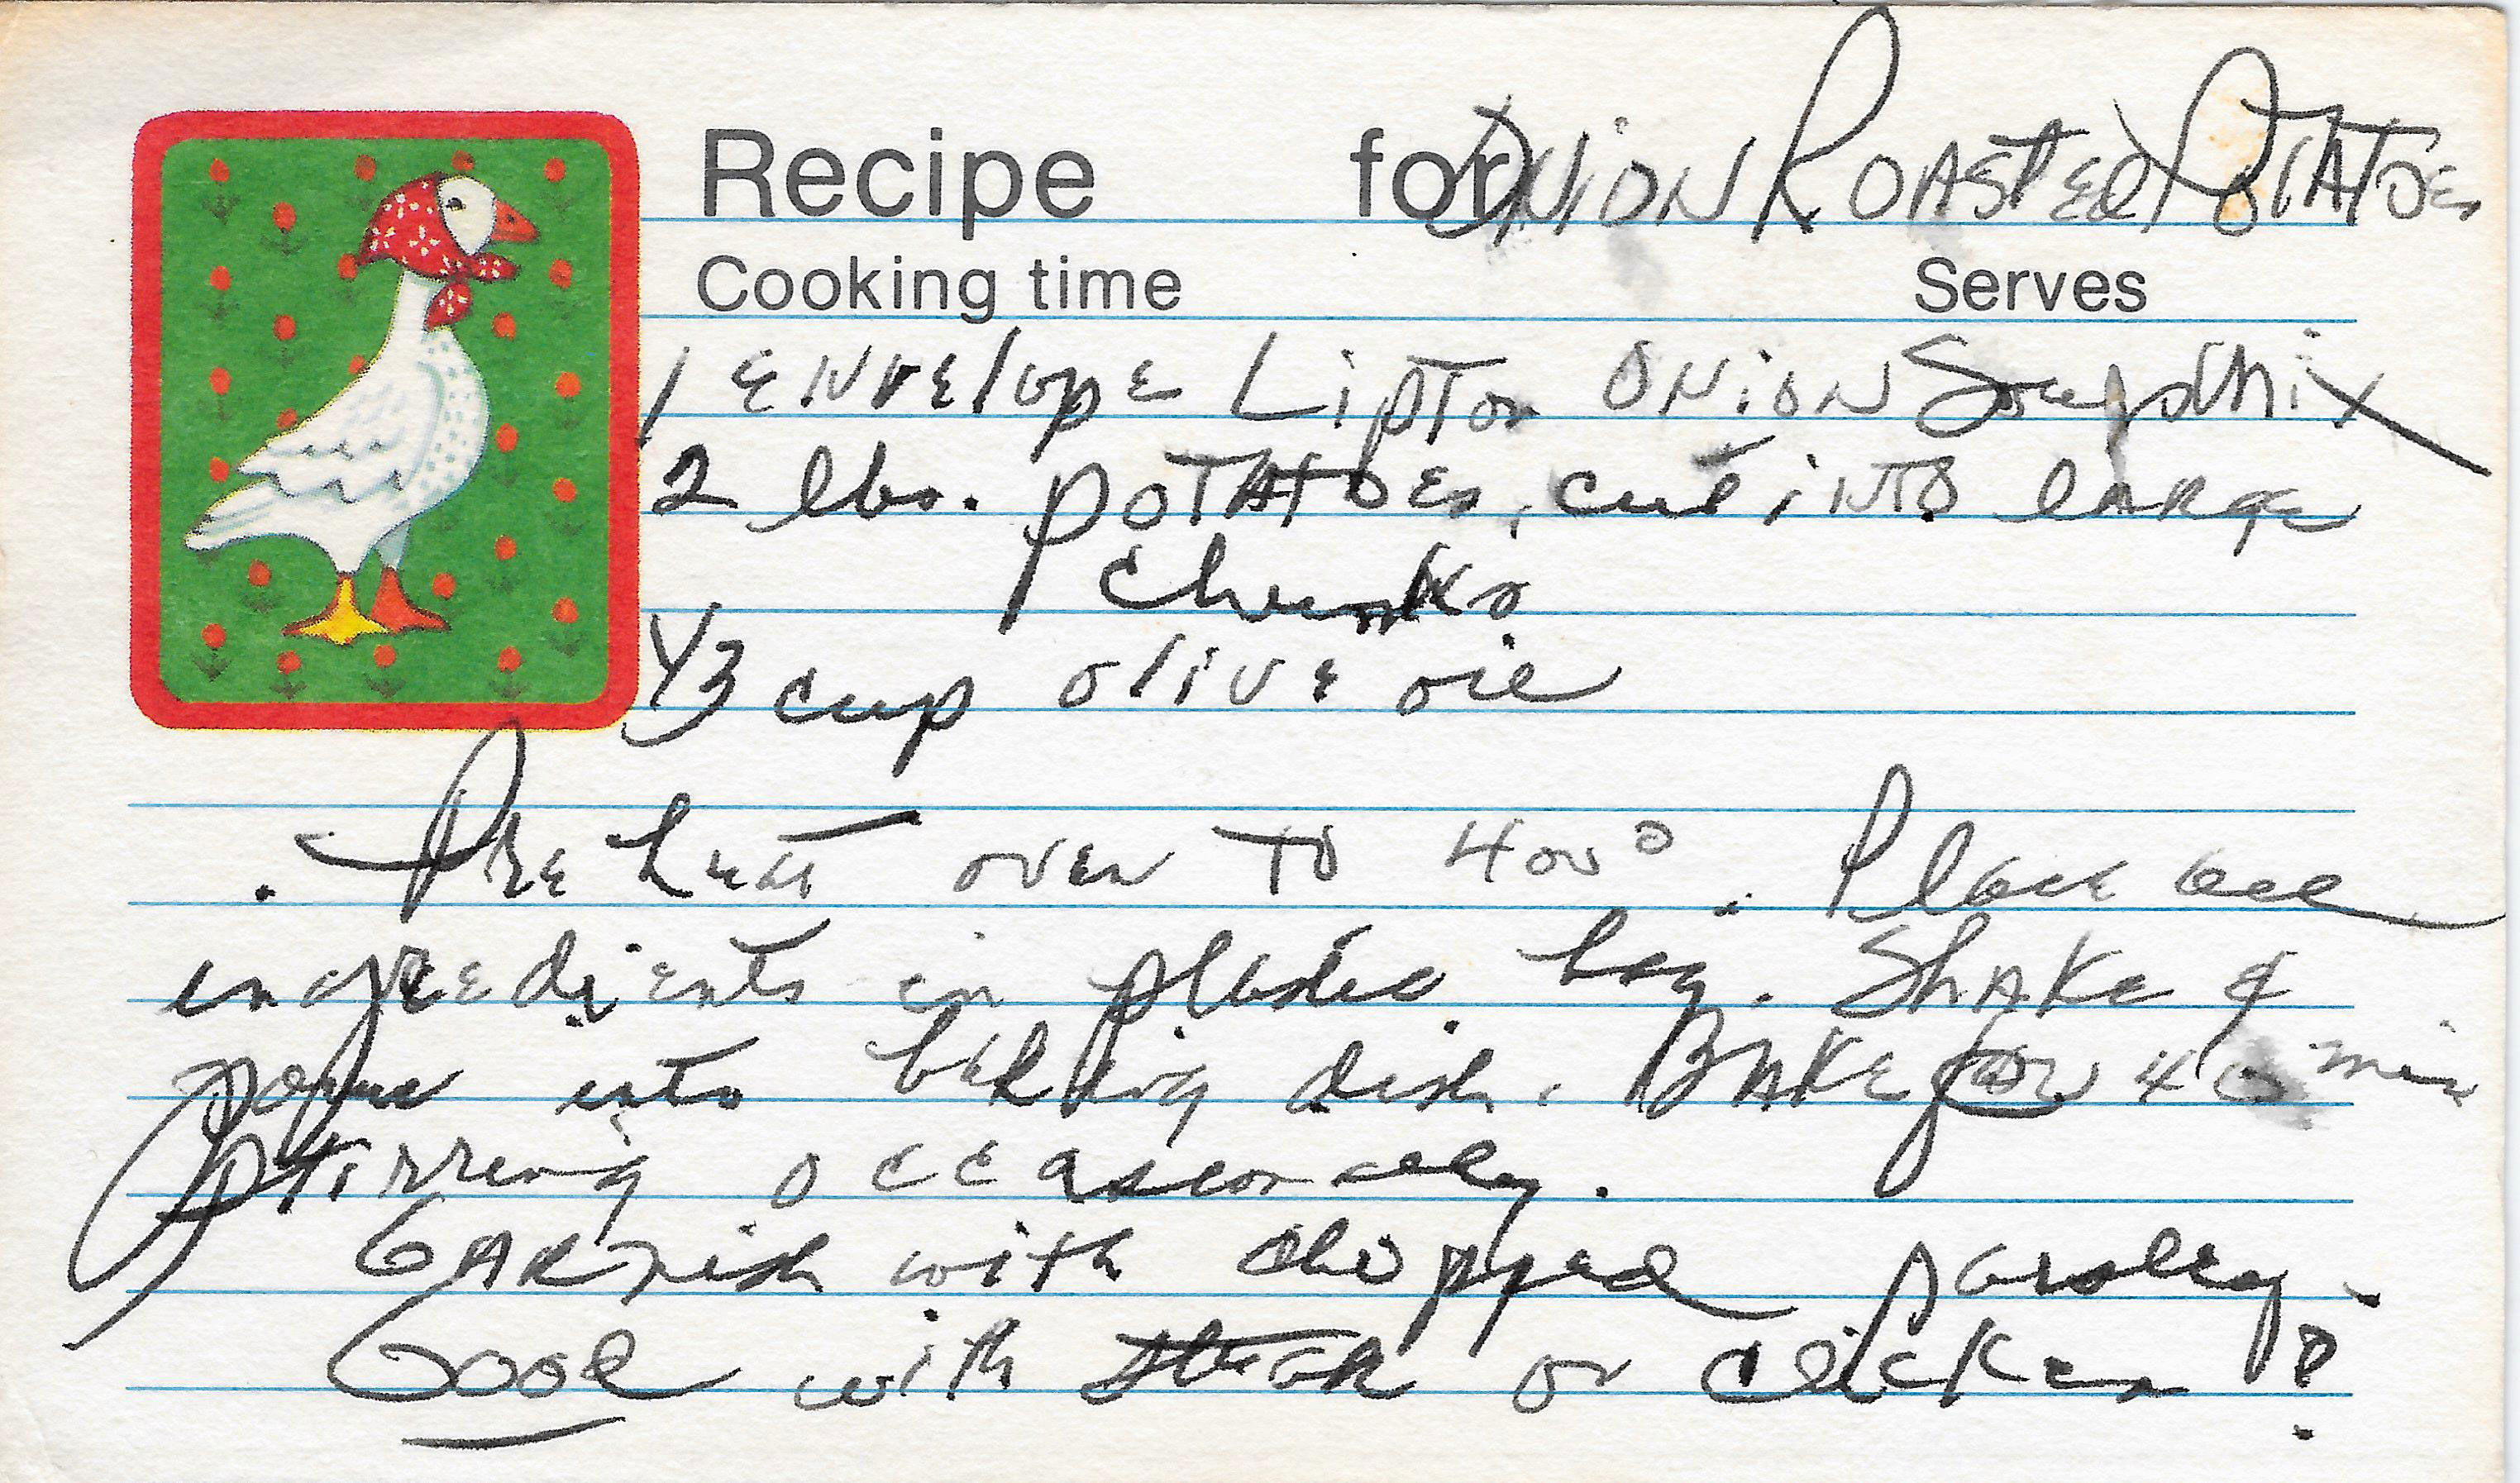 Recipe for Onion Roasted Potatoes
Cooking time Serves
1 envelope Lipton Onion Soup Mix
2 lbs. potatoes, cut into large
chunks
1/3 cup olive oil
. Preheat oven to 400°. Place all
ingredients in plastic bag. Shake &
pour into baking dish. Bake for 40 min
stirring occasionally.
Garnish with chopped parsley.
Good with steak or chicken!